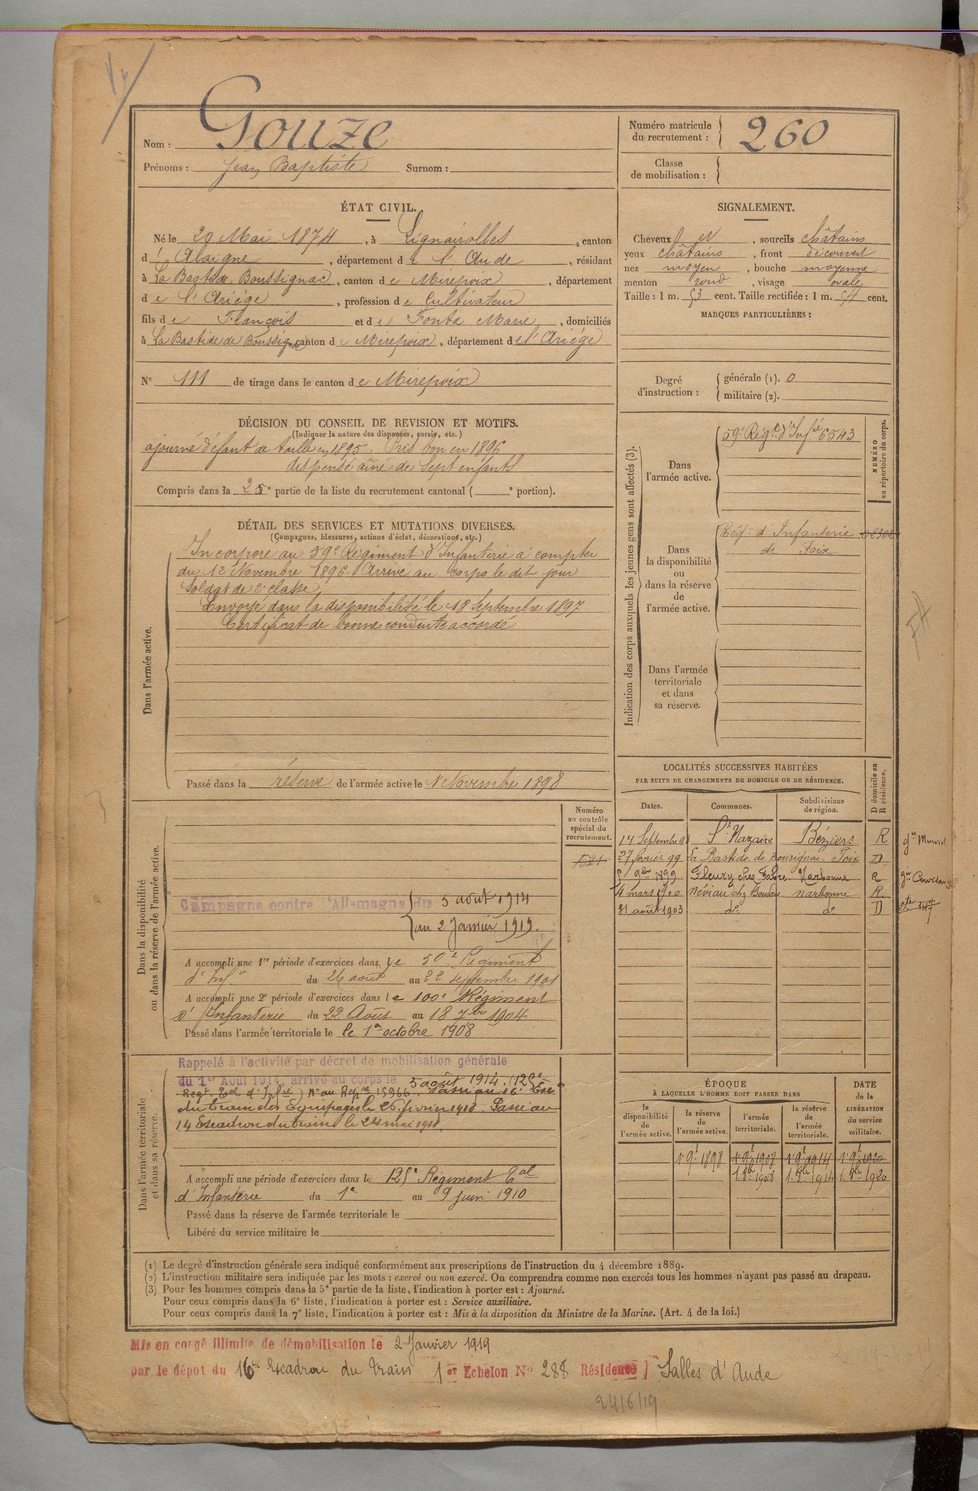 Nom : Gouze
Prénoms : Jean Baptiste Surnom :
Numéro matricule du recrutement : 260
Classe de mobilisation :
ÉTAT CIVIL.
Né le 20 Mai 1874, à Lignairolles, canton
d'Alaigne, département de l'Aude, résidant
à La Bastide Boussignac, canton de Mirepoix, département
de l'Ariège, profession de Cultivateur
fils de François et de Fonta Marie, domiciliés
à La Bastide de Boussignac canton de Mirepoix, département de l'Ariège
N° 111 de tirage dans le canton de Mirepoix
SIGNALEMENT.
Cheveux, sourcils châtains
yeux châtains, front découvert
nez moyen, bouche moyenne
menton rond, visage ovale
Taille : 1 m. 53 cent. Taille rectifiée : 1 m. 54 cent.
MARQUES PARTICULIÈRES :
Degré d'instruction : générale (1). 0
militaire (2).
DÉCISION DU CONSEIL DE REVISION ET MOTIFS.
(Indiquer la nature des dispenses, sursis, etc.)
ajourné défaut de taille en 1895. Pris bon en 1896
dispensé aîné de sept enfants
Compris dans la 2e partie de la liste du recrutement cantonal ( e portion).
DÉTAIL DES SERVICES ET MUTATIONS DIVERSES.
(Campagnes, blessures, actions d'éclat, décorations, etc.)
Dans l'armée active.
Incorporé au 59e Régiment d'Infanterie à compter
du 12 Novembre 1896. Arrivé au corps le dit jour
Soldat de 2e classe.
Envoyé dans la disponibilité le 18 Septembre 1897
Certificat de bonne conduite accordé
Passé dans la réserve de l'armée active le 1 Novembre 1898
Indication des corps auxquels les jeunes gens sont affectés (3).
NUMÉRO au répertoire du corps.
Dans l'armée active.
59e Régt d'Infie 6543
Dans la disponibilité ou dans la réserve de l'armée active.
Rég. d'Infanterie
de Foix
Dans l'armée territoriale et dans sa réserve.
LOCALITÉS SUCCESSIVES HABITÉES
PAR SUITE DE CHANGEMENTS DE DOMICILE OU DE RÉSIDENCE.
D domicile ou R résidence.
Dates. Communes. Subdivisions de région.
14 Septembre 98 St Nazaire Béziers R
27 février 99 La Bastide de Bousignac Foix D
5 9bre 1899 Fleury chez Fabre Narbonne R
4 mars 1900 Névian chez Boudou Narbonne R
31 août 1903 do do D
Numéro au contrôle spécial du recrutement.
Dans la disponibilité ou dans la réserve de l'armée active.
Campagne contre l'Allemagne du 5 août 1914
au 2 Janvier 1919.
A accompli une 1re période d'exercices dans le 50e Régiment
d'Infie du 26 août au 22 septembre 1901
A accompli une 2e période d'exercices dans le 100e Régiment
d'Infanterie du 22 Août au 18 7bre 1904
Passé dans l'armée territoriale le le 1er octobre 1908
Dans l'armée territoriale et dans sa réserve.
Rappelé à l'activité par décret de mobilisation générale
du 1er Août 1914, arrivé au corps le 5 août 1914. (125e
Regt Tal d'Infie) No au Repre 15966. Passé au 16e Esc
du train des Equipages le 26 février 1918. Passé au
14 Escadron du train le 24 mai 1918
A accompli une période d'exercices dans le 125e Régiment Tal
d'Infanterie du 1er au 9 Juin 1910
Passé dans la réserve de l'armée territoriale le
Libéré du service militaire le
ÉPOQUE
À LAQUELLE L'HOMME DOIT PASSER DANS
la disponibilité de l'armée active. la réserve de l'armée active. l'armée territoriale. la réserve de l'armée territoriale.
DATE de la LIBÉRATION du service militaire.
1 9bre 1898 1 9bre 1907 1 9bre 1914 1 9bre 1920
1 8bre 1908 1 8bre 1914 1 8bre 1920
(1) Le degré d'instruction générale sera indiqué conformément aux prescriptions de l'instruction du 4 décembre 1889.
(2) L'instruction militaire sera indiquée par les mots : exercé ou non exercé. On comprendra comme non exercés tous les hommes n'ayant pas passé au drapeau.
(3) Pour les hommes compris dans la 5e partie de la liste, l'indication à porter est : Ajourné.
Pour ceux compris dans la 6e liste, l'indication à porter est : Service auxiliaire.
Pour ceux compris dans la 7e liste, l'indication à porter est : Mis à la disposition du Ministre de la Marine. (Art. 4 de la loi.)
Mis en congé illimité de démobilisation le 2 Janvier 1919
par le dépôt du 16e Escadron du train 1er Echelon No 288 Résidence Salles d'Aude
24/6/19